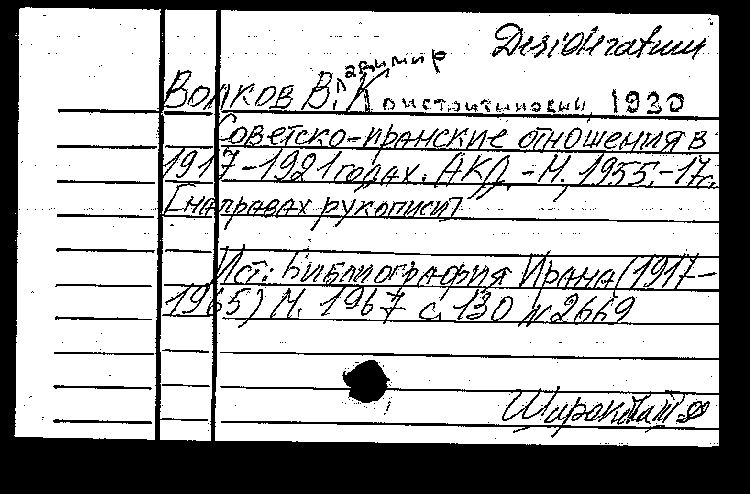 Desideratum
Волков Владимир Константинович, 1930
Советско-иранские отношения в
1917-1921 годах. АКД. - М., 1955. - 17 с.
[на правах рукописи]
Ист.: Библиография Ирана (1917-
1965) М. 1967 с. 130 № 2669